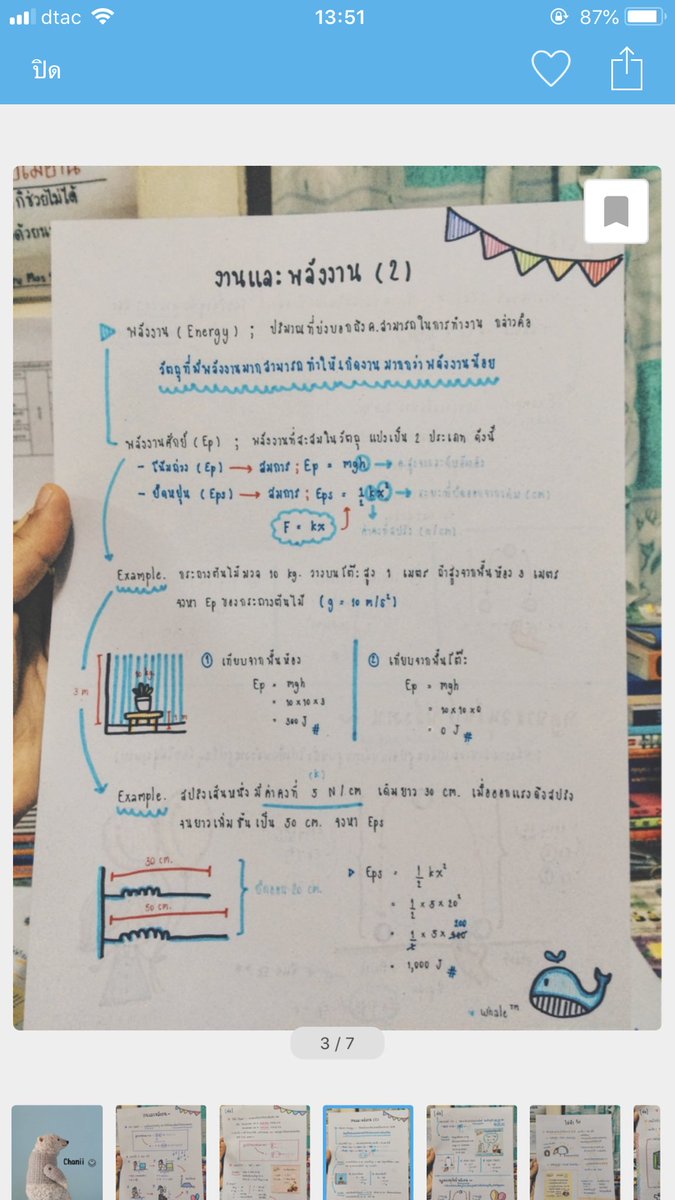 dtac
13:51
87%
ปิด
ก็ช่วยไม่ได้
งานและพลังงาน (2)
พลังงาน (Energy) ; ปริมาณที่บ่งบอกถึง ค.สามารถในการทำงาน กล่าวคือ
วัตถุที่มีพลังงานมากสามารถทำให้เกิดงาน มากกว่า พลังงานน้อย
พลังงานศักย์ (Ep) ; พลังงานที่สะสมในวัตถุ แบ่งเป็น 2 ประเภท ดังนี้
- โน้มถ่วง (Ep) → สมการ ; Ep = mgh →
- ยืดหยุ่น (Eps) → สมการ ; Eps = ½kx² →
F = kx
Example. กระถางต้นไม้มวล 10 kg. วางบนโต๊ะสูง 1 เมตร ถ้าสูงจากพื้นห้อง 3 เมตร
จงหา Ep ของกระถางต้นไม้ (g = 10 m/s²)
3 m
10 kg
1 m
① เทียบจากพื้นห้อง
Ep = mgh
= 10 x 10 x 3
= 300 J #
② เทียบจากพื้นโต๊ะ
Ep = mgh
= 10 x 10 x 0
= 0 J #
(k)
Example. สปริงเส้นหนึ่ง มีค่าคงที่ 5 N/cm เดิมยาว 30 cm. เมื่อออกแรงดึงสปริง
จนยาวเพิ่มขึ้นเป็น 50 cm. จงหา Eps
30 cm.
50 cm.
ยืดออก 20 cm.
Eps = ½ kx²
= ½ x 5 x 20²
200
= ½ x 5 x 400
= 1,000 J #
whale™
3 / 7
Chanii